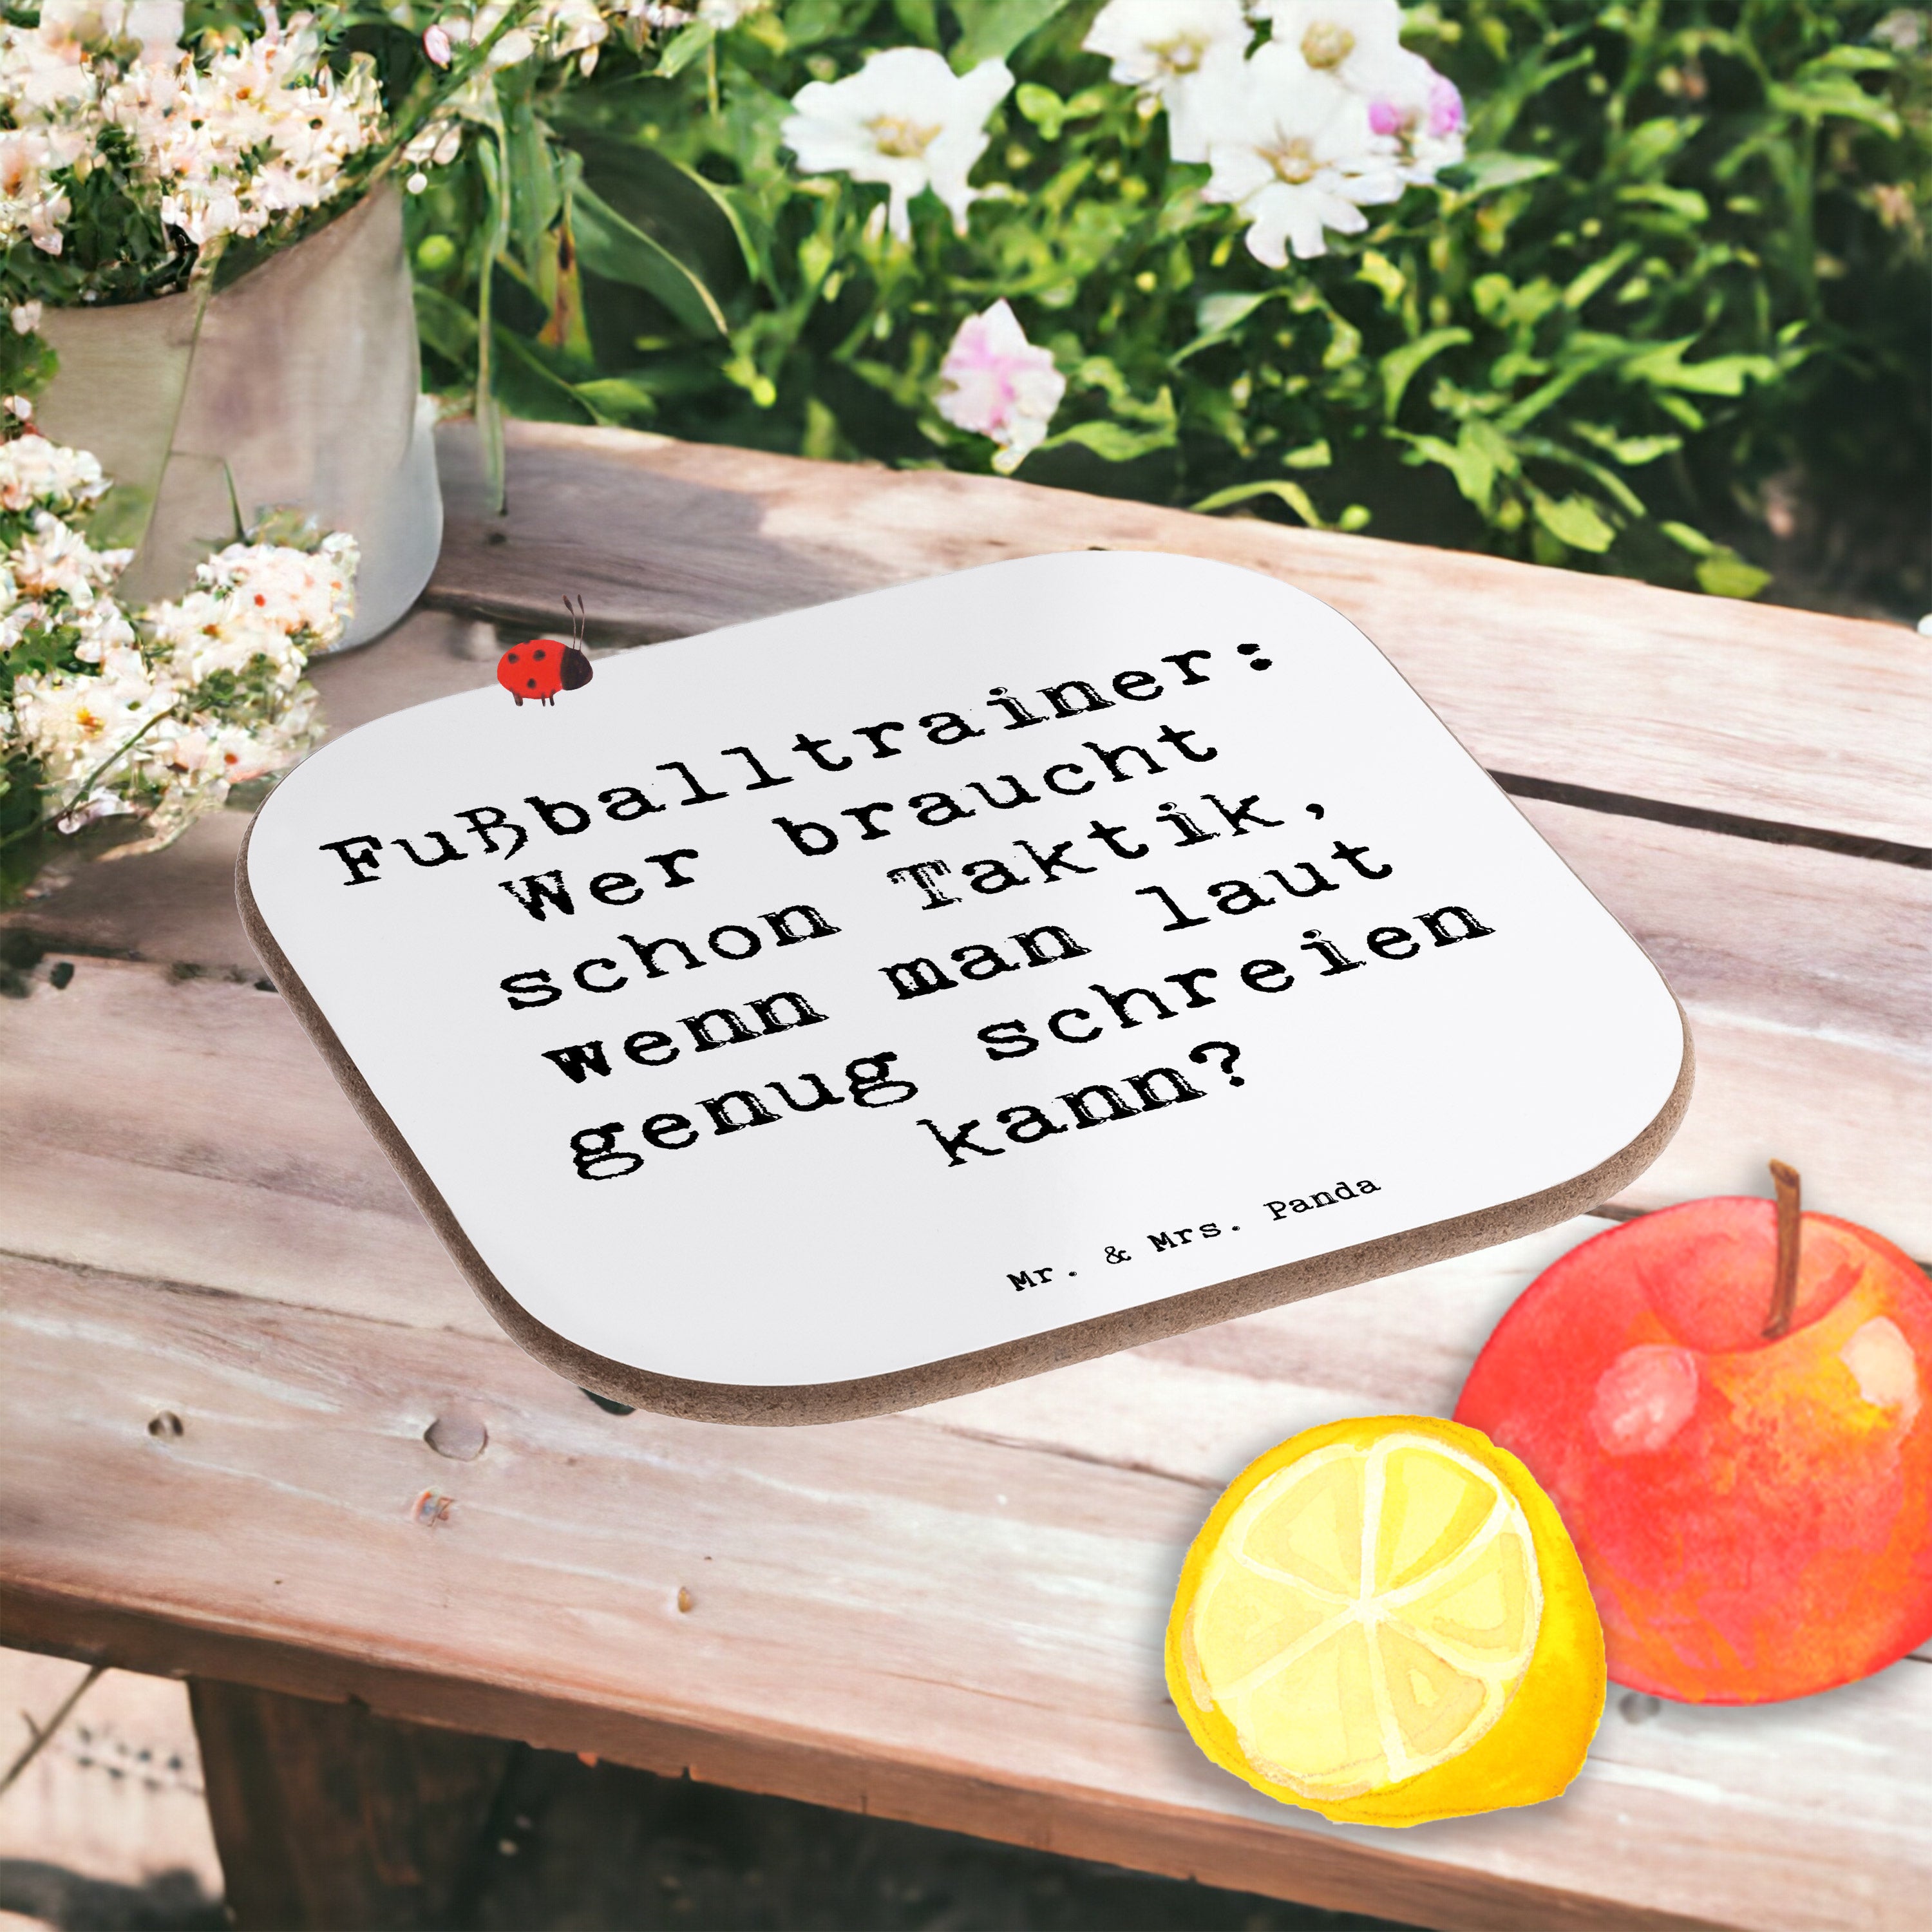 Fußballtrainer:
Wer braucht
schon Taktik,
wenn man laut
genug schreien
kann?
Mr. & Mrs. Panda